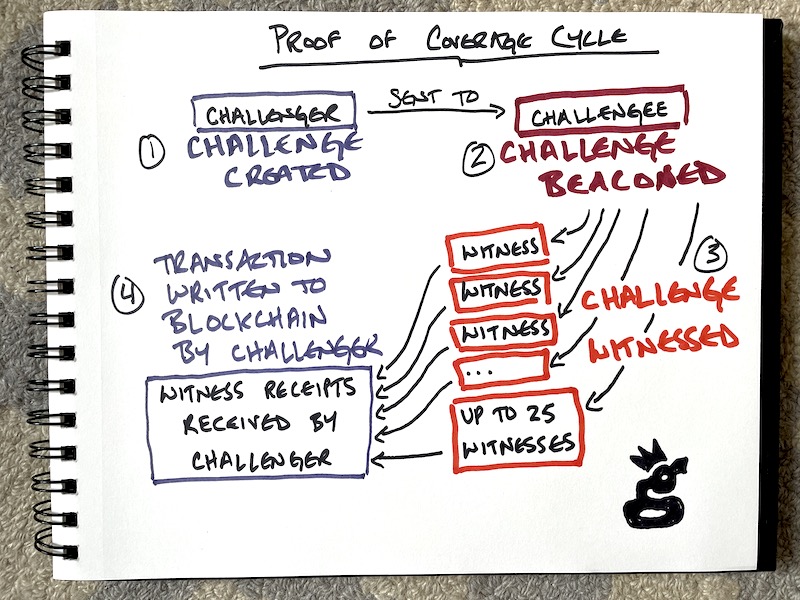 PROOF OF COVERAGE CYCLE
CHALLENGER
SENT TO
CHALLENGEE
1
CHALLENGE
CREATED
2
CHALLENGE
BEACONED
WITNESS
WITNESS
WITNESS
...
UP TO 25
WITNESSES
3
CHALLENGE
WITNESSED
4
TRANSACTION
WRITTEN TO
BLOCKCHAIN
BY CHALLENGER
WITNESS RECEIPTS
RECEIVED BY
CHALLENGER